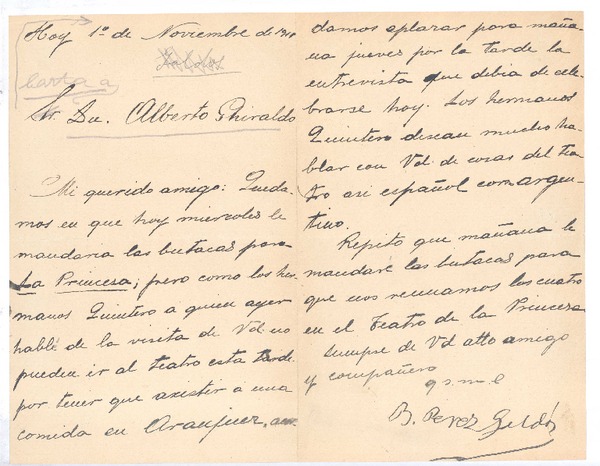 Hoy 1º de Noviembre de 191
Carta a
Sr. Dn. Alberto Ghiraldo
Mi querido amigo: Queda-
mos en que hoy miercoles le
mandaria las butacas para
La Princesa; pero como los her-
manos Quintero a quien ayer
hablé de la visita de Vd no
pueden ir al teatro esta tarde
por tener que asistir a una
comida en Aranjuez,
damos aplazar para maña-
na jueves por la tarde la
entrevista que debia de cele-
brarse hoy. Los hermanos
Quintero desean mucho ha-
blar con Vd de cosas del tea-
tro asi español com argen-
tino.
Repito que mañana le
mandaré las butacas para
que nos reunamos los cuatro
en el Teatro de la Princesa
Siempre de Vd atto amigo
y compañero
q s m e
B. Perez Galdós